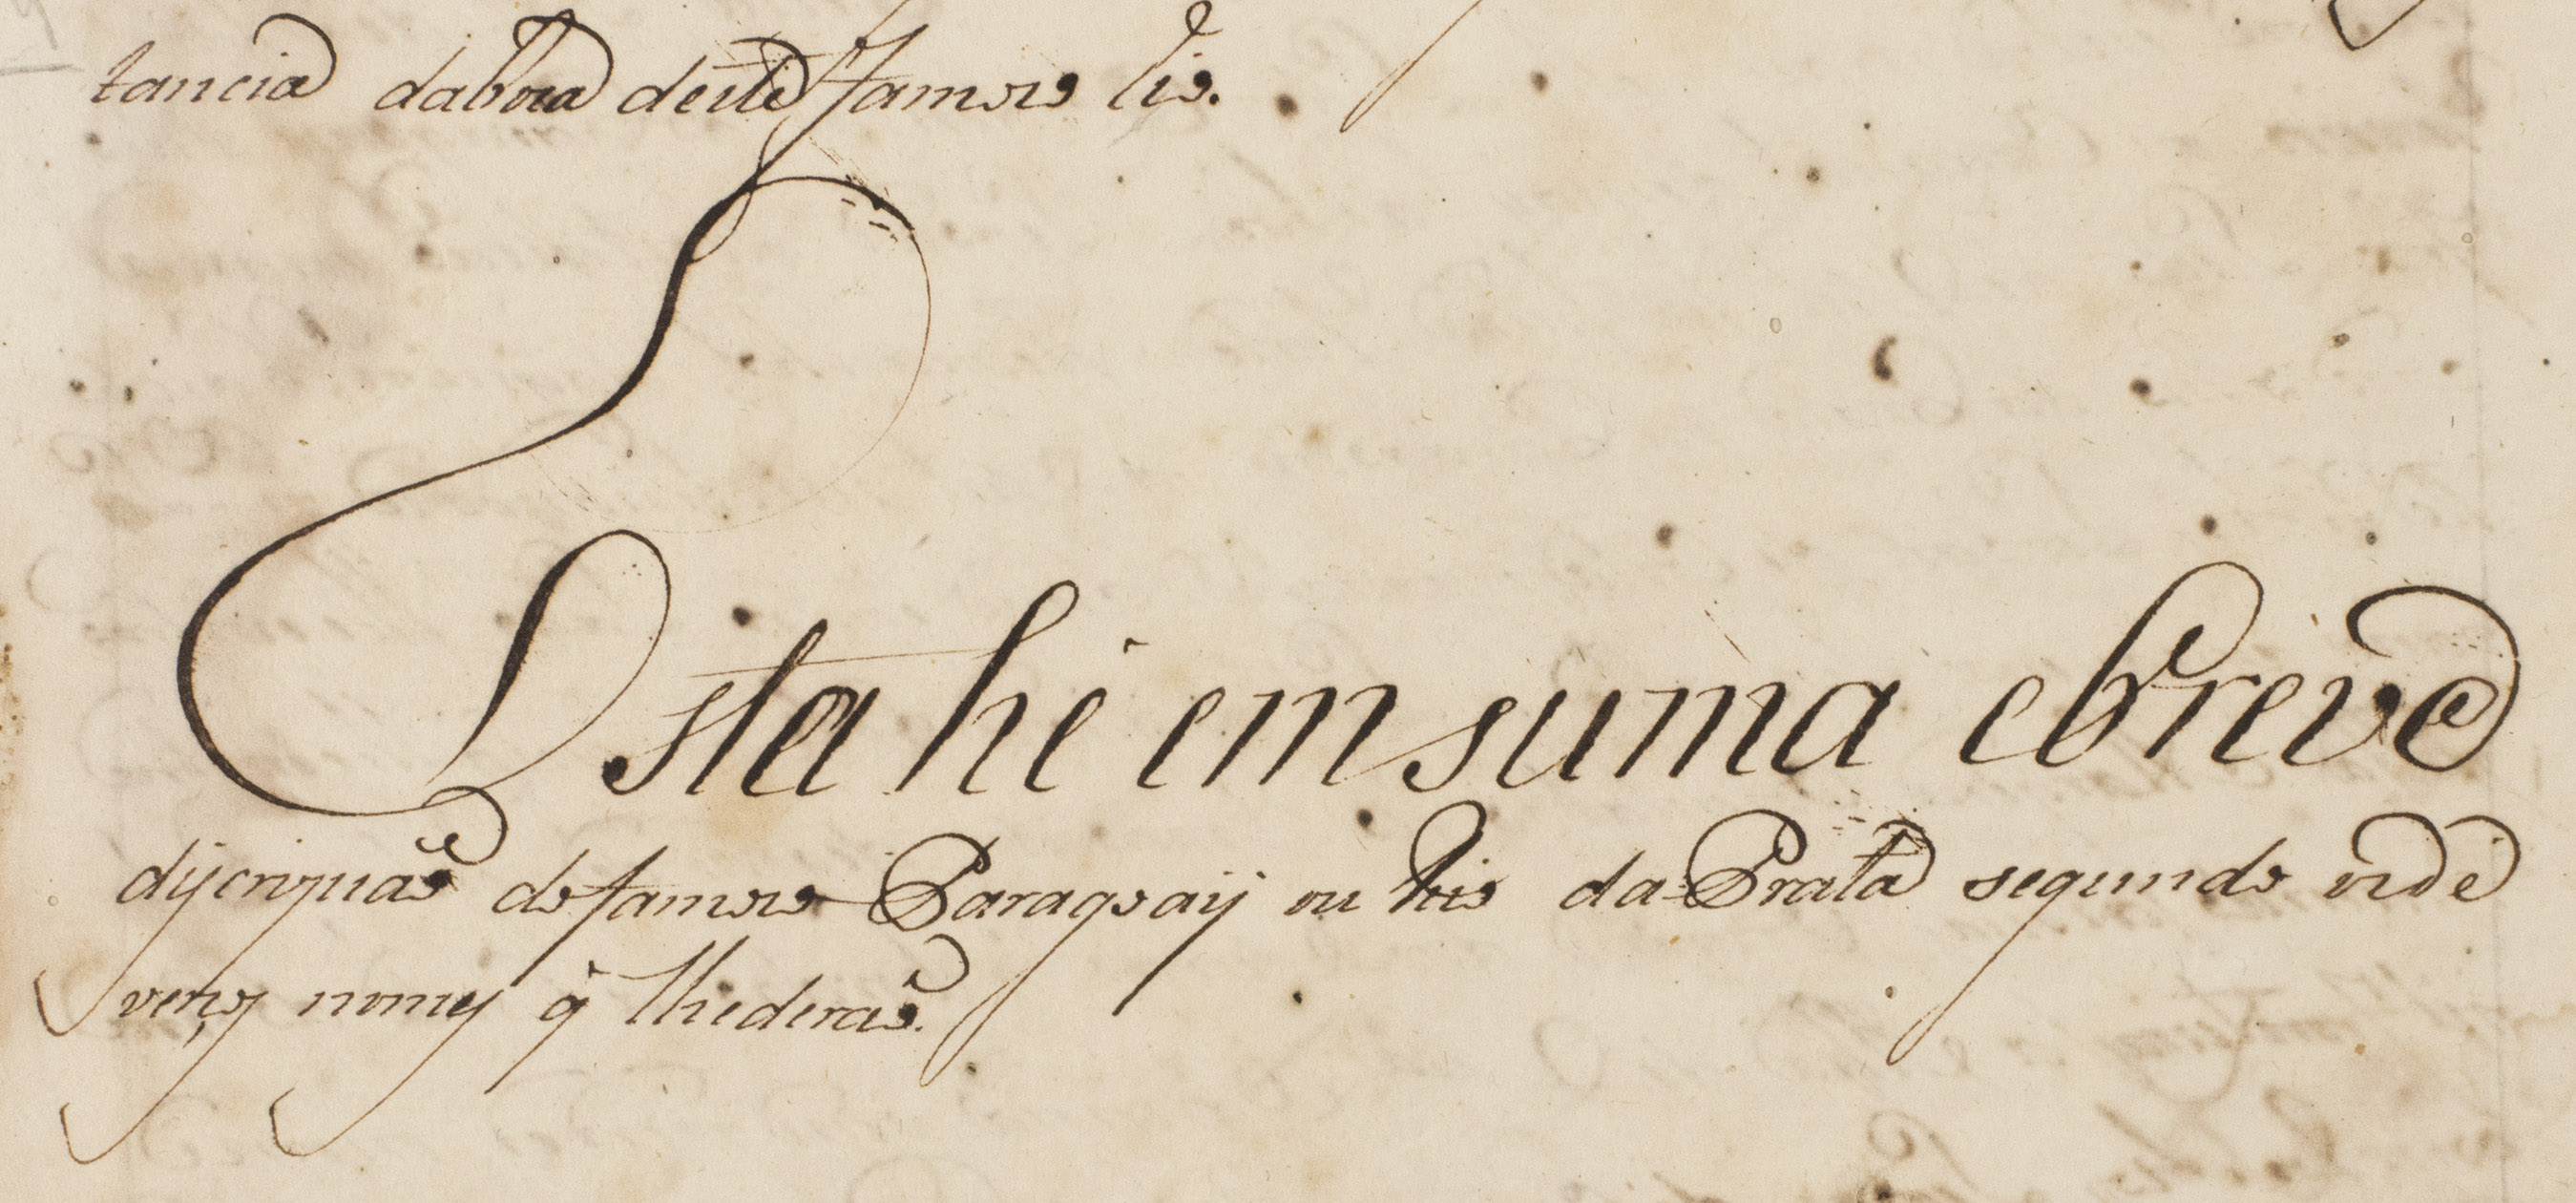 tancia dabora deste famozo Rio.
Esta hé em suma ebreve
discripsaõ do famozo Paragoaij ou Rio da Prata segundo os de
verços nomes q̃ lhe deraõ.